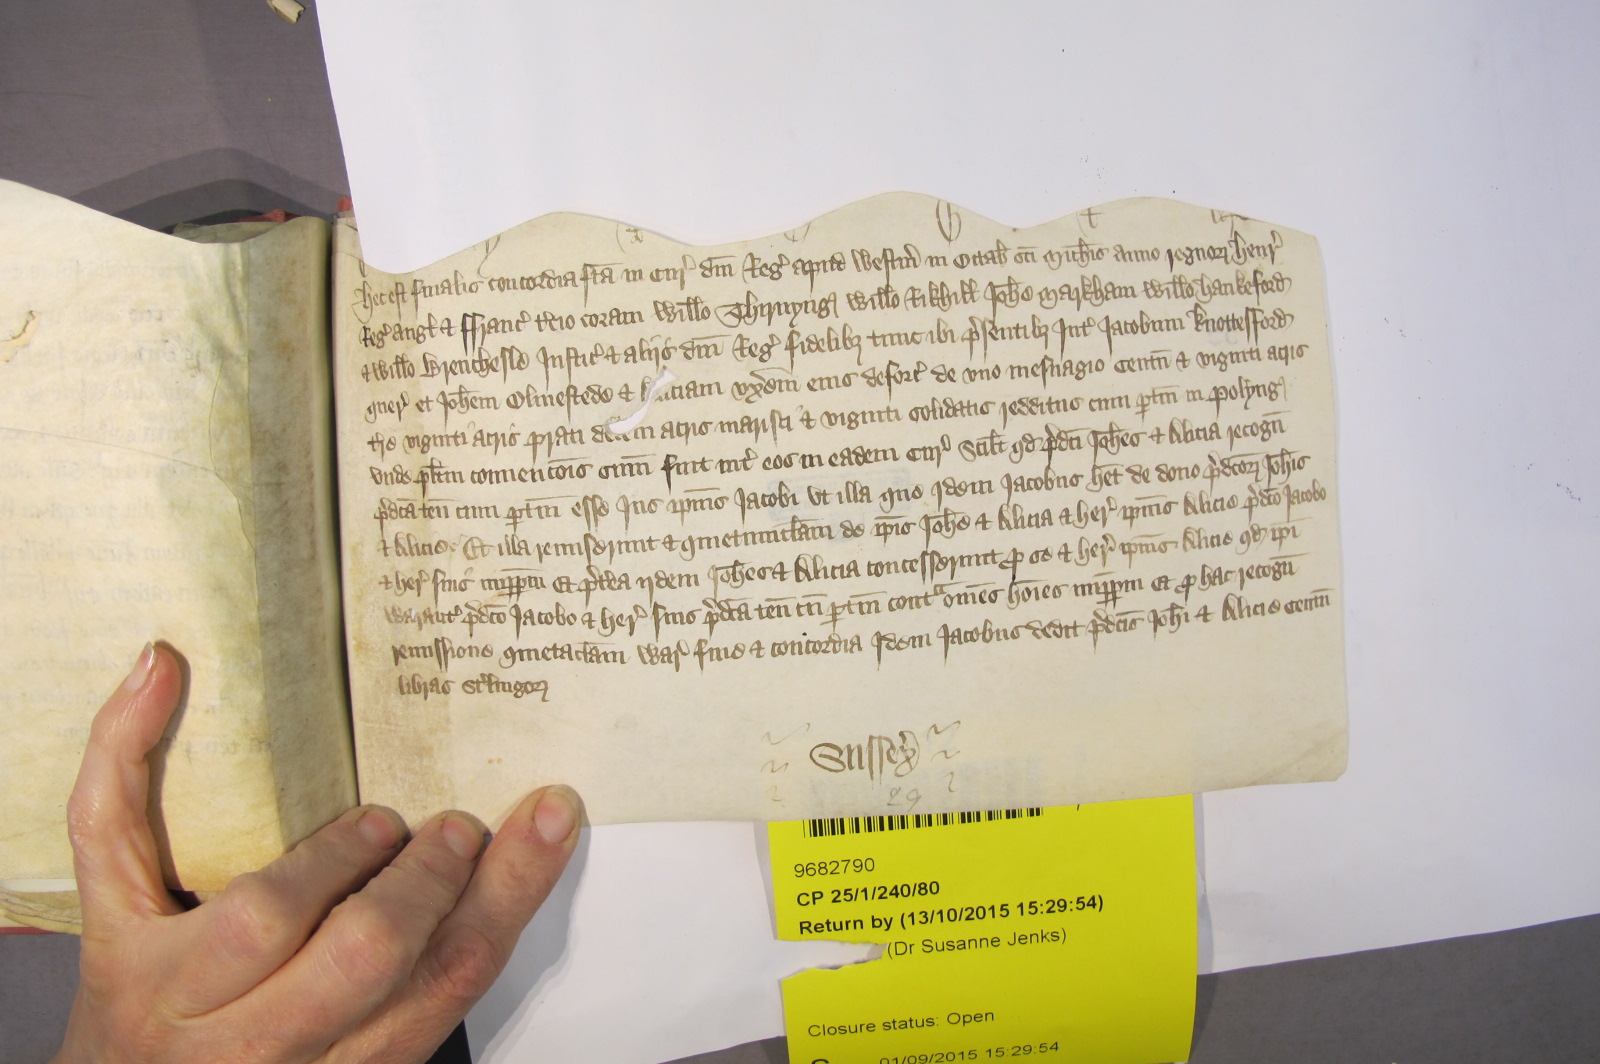 Hec est finalis concordia fc̃a in Cur̃ dñi Reg̃ apud Westm̃ in Octab̃ sc̃i Mich̃is anno regnoꝝ Henr̃
Reg̃ Angl̃ & Ffranc̃ t̾cio coram Willo Thirnyng Willo Rikhill Joh̃e Markham Willo Hankeford
& Willo Brenchesle Justic̃ & aliis dñi Reg̃ fidelibꝫ tunc ibi p̃sentibꝫ Int̃ Jacobum Knottesford
quer̃ et Joh̃em Olmestede & Aliciam vx̃em eius deforc̃ de vno mesuagio Centũ & viginti acris
t̾re viginti acris prati decem acris marisci & viginti solidatis redditus cum ꝑtiñ in Polyng
vnde pl̃itum convencõis sum̃ fuit int̃ eos in eadem Cur̃ Scil̃t qd̃ p̃dc̃i Joh̃es & Alicia recogñ
p̃dc̃a teñ cum ꝑtiñ esse Jus ip̃ius Jacobi Vt illa que Idem Jacobus h̃et de dono p̃dc̃oꝝ Joh̃is
& Alicie Et illa remiserunt & quietumclam̃ de ip̃is Joh̃e & Alicia & her̃ ip̃ius Alicie p̃dc̃o Jacobo
& her̃ suis imꝑpm̃ Et p̃t̾ea ijdem Joh̃es & Alicia concesserunt ꝓ se & her̃ ip̃ius Alicie qd̃ ip̃i
Warant̃ p̃dc̃o Jacobo & her̃ suis p̃dc̃a teñ cũ ꝑtiñ contᵃ om̃es hoĩes imꝑpm̃ Et ꝓ hac recogñ
remissione quietaclam̃ War̃ fine & concordia Idem Jacobus dedit p̃dc̃is Joh̃i & Alicie Centum
libras st̾lingoꝝ
Sussex̃
29
9682790
CP 25/1/240/80
Return by (13/10/2015 15:29:54)
(Dr Susanne Jenks)
Closure status: Open
01/09/2015 15:29:54